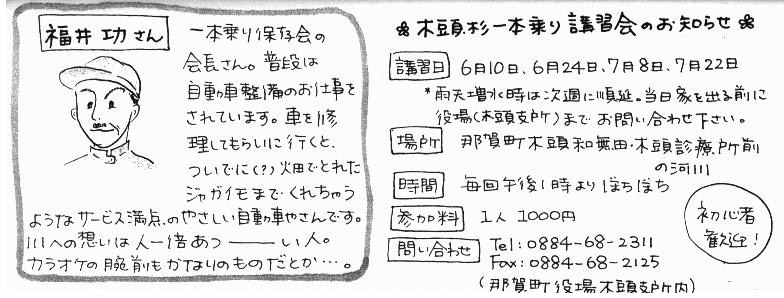 福井 功さん
一本乗り保存会の
会長さん。普段は
自動車整備のお仕事を
されています。車を修
理してもらいに行くと、
ついでに(?)畑でとれた
ジャガイモまでくれちゃう
ようなサービス満点のやさしい自動車やさんです。
川への想いは人一倍あつ――――い人。
カラオケの腕前もかなりのものだとか…。
木頭杉一本乗り講習会のお知らせ
講習日 6月10日、6月24日、7月8日、7月22日
*雨天増水時は次週に順延。当日家を出る前に
役場(木頭支所)までお問い合わせ下さい。
場所 那賀町木頭和無田・木頭診療所前
の河川
時間 毎回午後1時よりぼちぼち
参加料 1人 1000円
問い合わせ Tel:0884-68-2311
Fax:0884-68-2125
(那賀町役場木頭支所内)
初心者
歓迎!